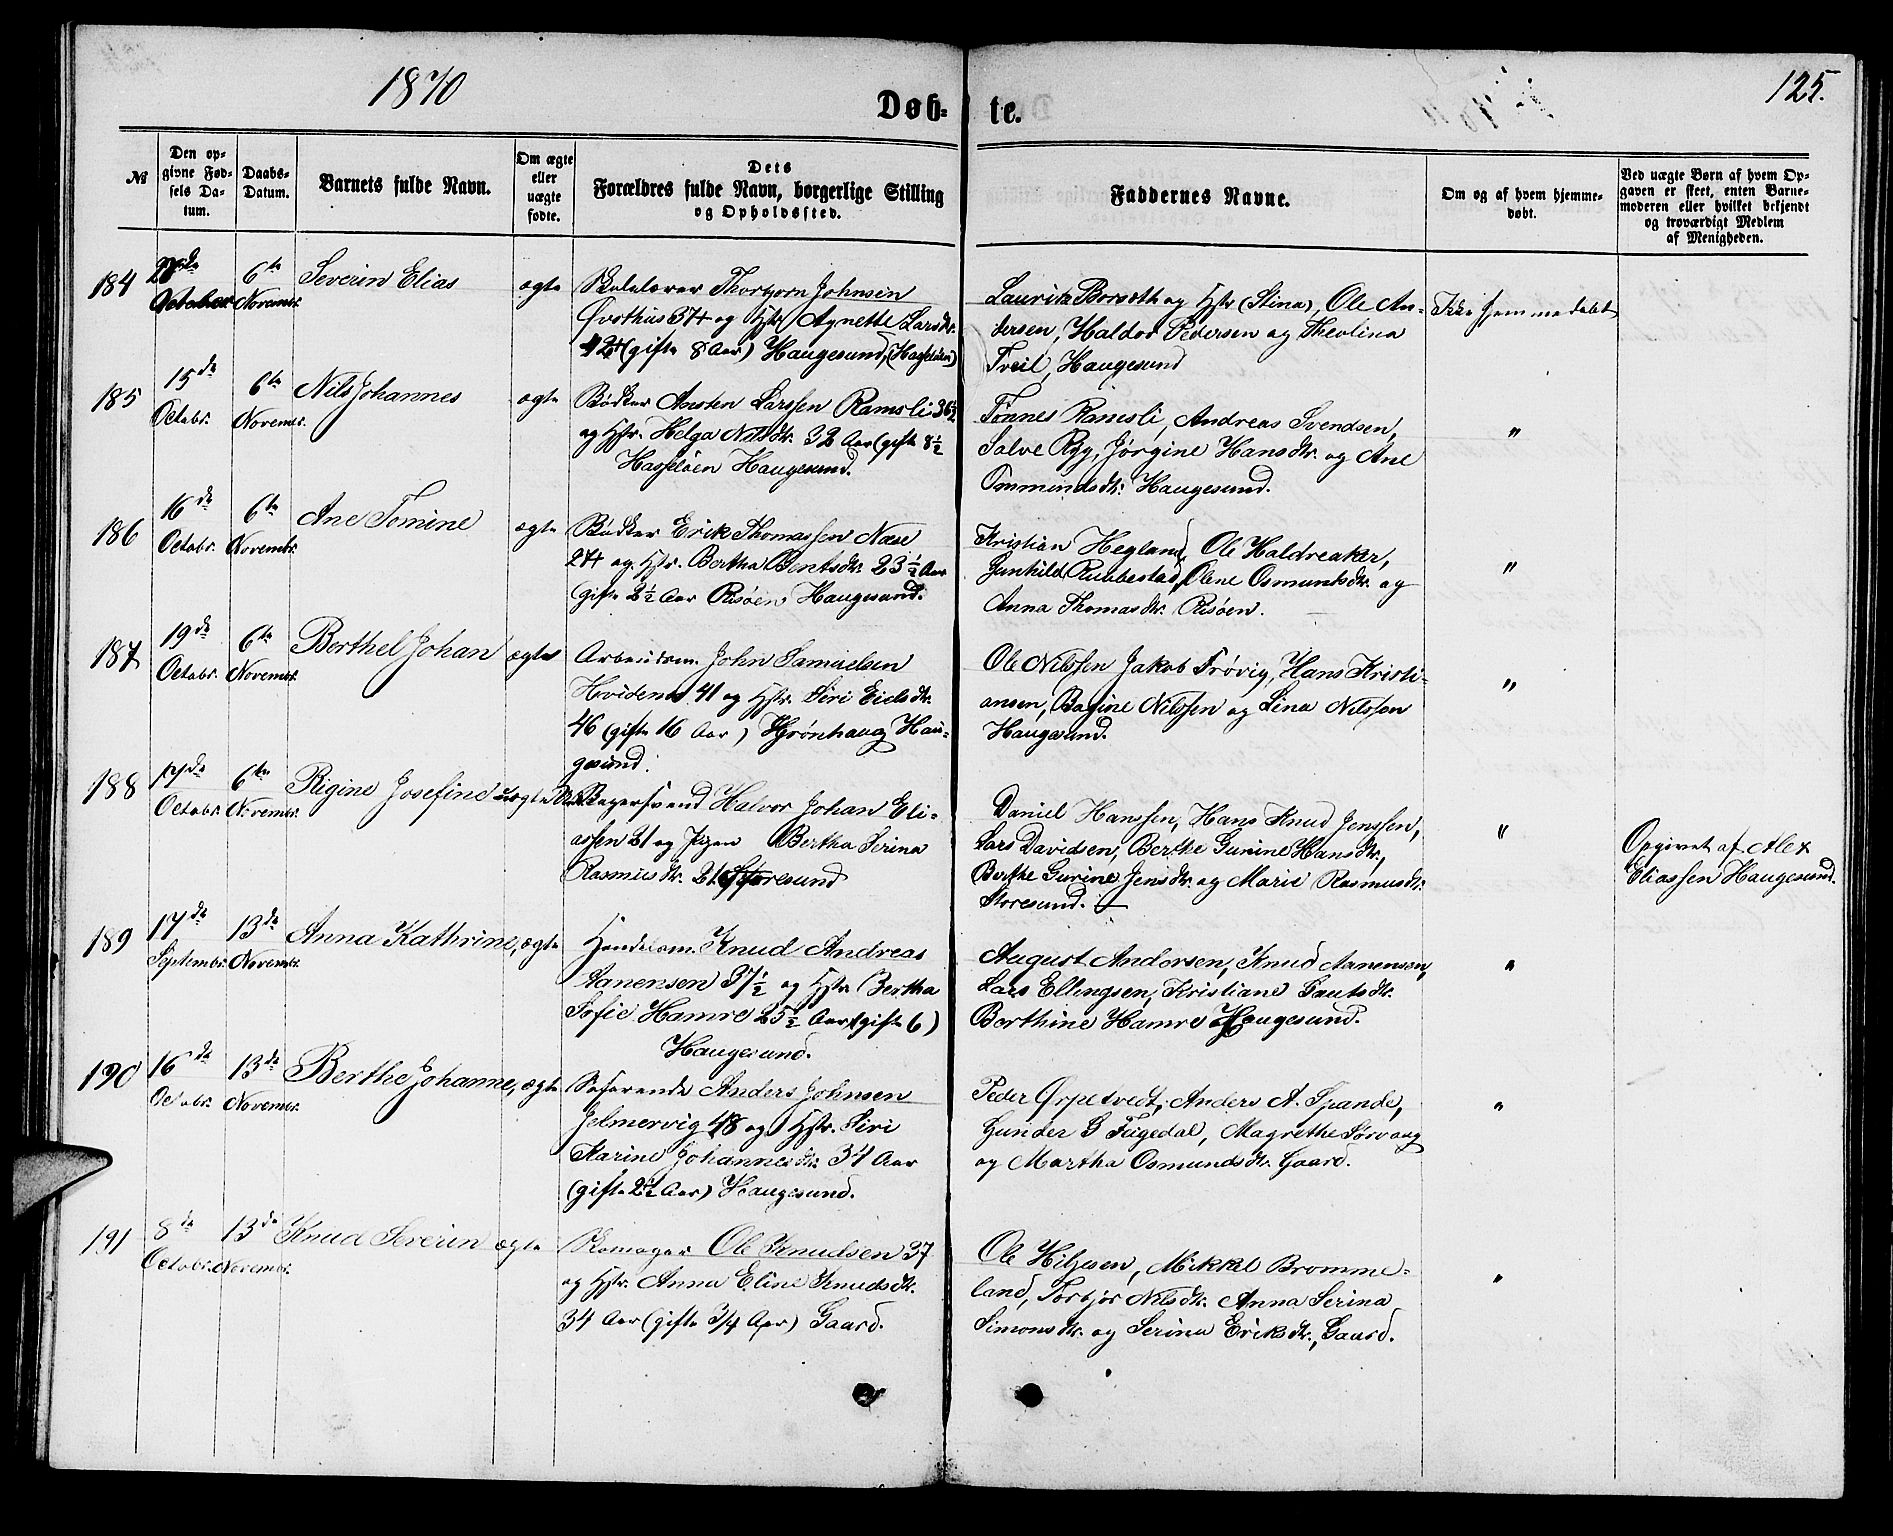 1870
125.
Døb-te.
№
Den opgivne Fødsels Datum.
Daabs-Datum.
Barnets fulde Navn.
Om ægte eller uægte fødte.
Dets Forældres fulde Navn, borgerlige Stilling og Opholdssted.
Faddernes Navne.
Om og af hvem hjemmedøbt.
Ved uægte Børn af hvem Opgaven er skeet, enten Barnemoderen eller hvilket bekjendt og troværdigt Medlem af Menigheden.
184
October
6te Novembr.
Severin Elias
ægte
Skolelærer Thorbjørn Johnsen
37+ og Hstr. Agnette Larsdtr.
42+ (gifte 8 Aar) Haugesund, (Hasseløen)
Lauritz Borsøth og Hstr (Stina), Ole An-
dersen, Haldor Pedersen og Theolina
Tveit, Haugesund
Ikke hjemmedøbt
185
15de Octobr.
6te Novembr.
Nils Johannes
ægte
Bødker Austen Larssen Ramsli 36½
og Hstr. Helga Nilsdtr. 32 Aar (gift 8½
Hasseløen Haugesund.
Tønnes Ramsli, Andreas Svendsen,
Salve Ryg, Jørgine Hansdtr. og Ane
Ommundsdtr. Haugesund.
"
186
16de Octobr.
6te Novembr.
Ane Tomine
ægte
Bødker Erik Thomassen Næse
27+ og Hstr. Bertha Bentsdtr. 23½ Aar
(gifte 2½ Aar Risøen Haugesund.
Kristian Hegland, Ole Haldreaker,
Gunhild Rubbestad, Olene Osmundsdtr. og
Anna Thomasdtr. Risøen.
"
187
19de Octobr.
6te Novembr.
Berthel Johan
ægte
Arbeidsm. John Samuelsen
Hvidenes 41 og Hstr. Siri Eielsdtr.
46 (gifte 16 Aar) Grønhaug Hau-
gesund.
Ole Nilssen Jakob Frøvig, Hans Kristi-
ansen, Bagine Nilssen og Lina Nilssen
Haugesund.
"
188
17de Octobr.
6te Novembr.
Rigine Josefine
uægte
Bagersvend Halvor Johan Eli-
assen 21 og Pigen Bertha Serina
Rasmusdtr. 21 Storesund
Daniel Hanssen, Hans Knud Jenssen,
Lars Davidsen, Berthe Gurine Hansdtr,
Berthe Gurine Jensdtr. og Marie Rasmusdtr.
Storesund.
"
Opgivet af Alex
Eliassen Haugesund.
189
17de Septembr.
13de Novembr.
Anna Kathrine,
ægte
Handelsm. Knud Andreas
Aanensen 37½ og Hstr. Bertha
Sofie Hamre 25½ Aar (gifte 6)
Haugesund.
August Andersen, Knud Aanensen,
Lars Ellingsen, Kristiane Gautsdtr.
Berthine Hamre Haugesund.
"
190
16de Octobr.
13de Novembr.
Berthe Johanne,
ægte
Søfarende Anders Johnsen
Jelmervig 48 og Hstr. Siri
Karine Johannesdtr. 34 Aar
(gifte 2½ Aar) Haugesund.
Peder Ørpetvedt, Anders A. Spande,
Gunder G Fugedal, Magrethe Sørvaag
og Martha Osmundsdtr. Gaard.
"
191
8de Octobr.
13de Novembr.
Knud Severin
ægte
Skomager Ole Knudsen 37
og Hstr. Anna Eline Knudsdtr.
34 Aar (gifte 3/4 Aar) Gaard.
Ole Hiljesen, Mikkel Bromme-
land, Torbjør Nilsdtr. Anna Serina
Simonsdtr. og Serina Eriksdtr., Gaard.
"